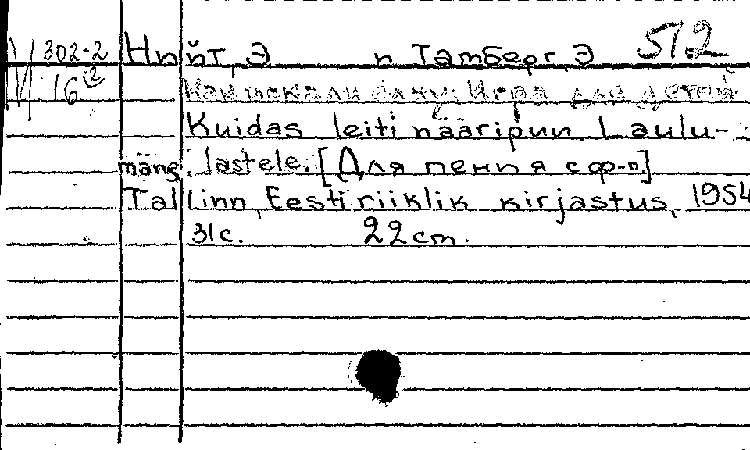 302-2 Нийт, Э и Тамберг, Э 512
16 Как искали ёлку. Игра для детей
Kuidas leiti nääripuu. Laulu-
mäng lastele. [Для пения с ф-п.]
Tallinn, Eesti riiklik kirjastus, 1954
31с. 22 см.